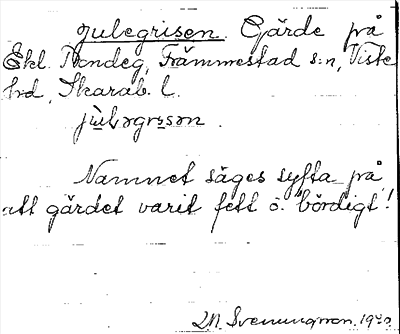 Julegrisen. Gärde på
Ekl. Främmestad s:n, Viste
hd, Skarab. l.
Namnet säges syfta på
att gärdet varit fett o. bördigt!